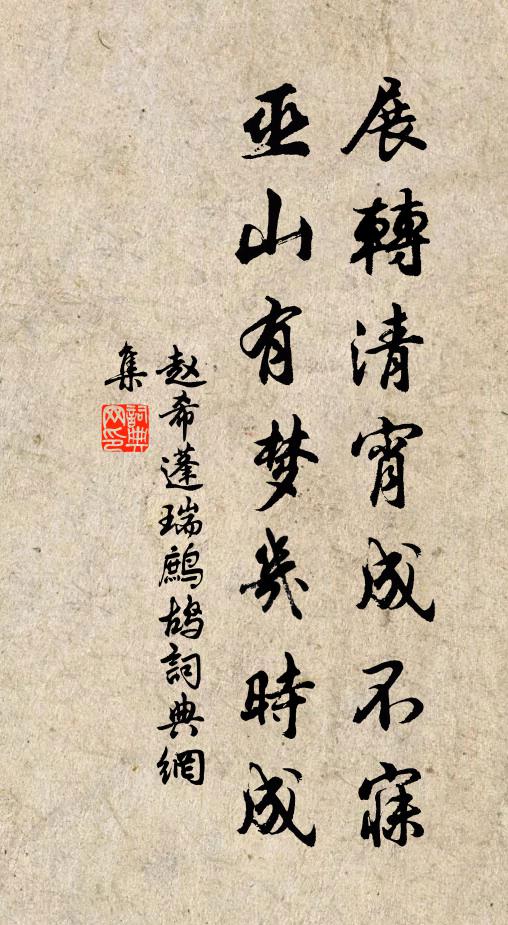 展轉清宵成不寐
巫山有梦几時成
赵希蓬瑞鹧鸪詞典網
集
詞典
网印